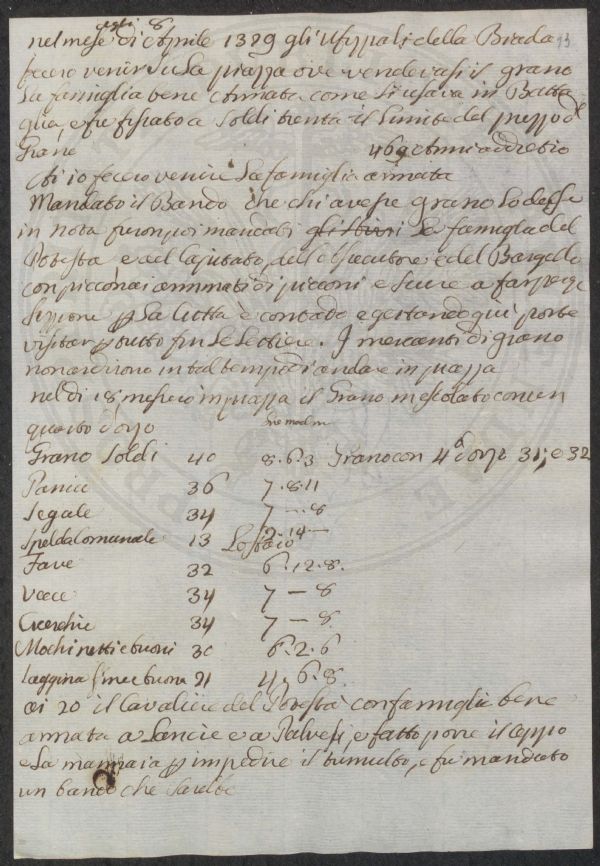 agli 8
nel mese di Aprile 1329 gli Ufizzali della Biada 13
fecero venir su la piazza ove vendevasi il grano
la famiglia bene Armata come si usava in Batta
glia, e fu fissato a soldi trenta il limite del prezzo del
Grane
469 Anni addietro
Ai 10 fecero venire la famiglia armata
Mandato il Bando che chi avesse grano lo desse
in nota furon poi mandati gli sbirri la famiglia del
Potestà e del Capitato, dell'Esecutore e del Bargello
con picconai ammati di picconi e scure a far
per la Città e contado e gettando giù porte
visitar per tutto fin le lettiere. I mercanti di grano
non ardirono in tal tempo di andare in piazza
nel di 18 mesero in piazza il Grano mescolato con un
quarto d'orzo
Grano Soldi 40 8.6.3 Grano con 4º d'orzo 31; e 32
Panico 36 7.8.11
Segale 34 7 — 8
Spelda Comunale 13 Lo staio 2.14 —
Fave 32 6.12.8.
Vecce 34 7 — 8
Cicerchie 34 7 — 8
Mochi netti e buoni 30 6.2.6
Saggina fine e buona 21 4.6.8.
ai 20 il Cavaliere del Potestà con famiglia bene
armata a Lancie e a Palvesi, e fatto porre il ceppo
e la mannaia per impedire il tumulto, e fu mandato
un bando che sarebbe